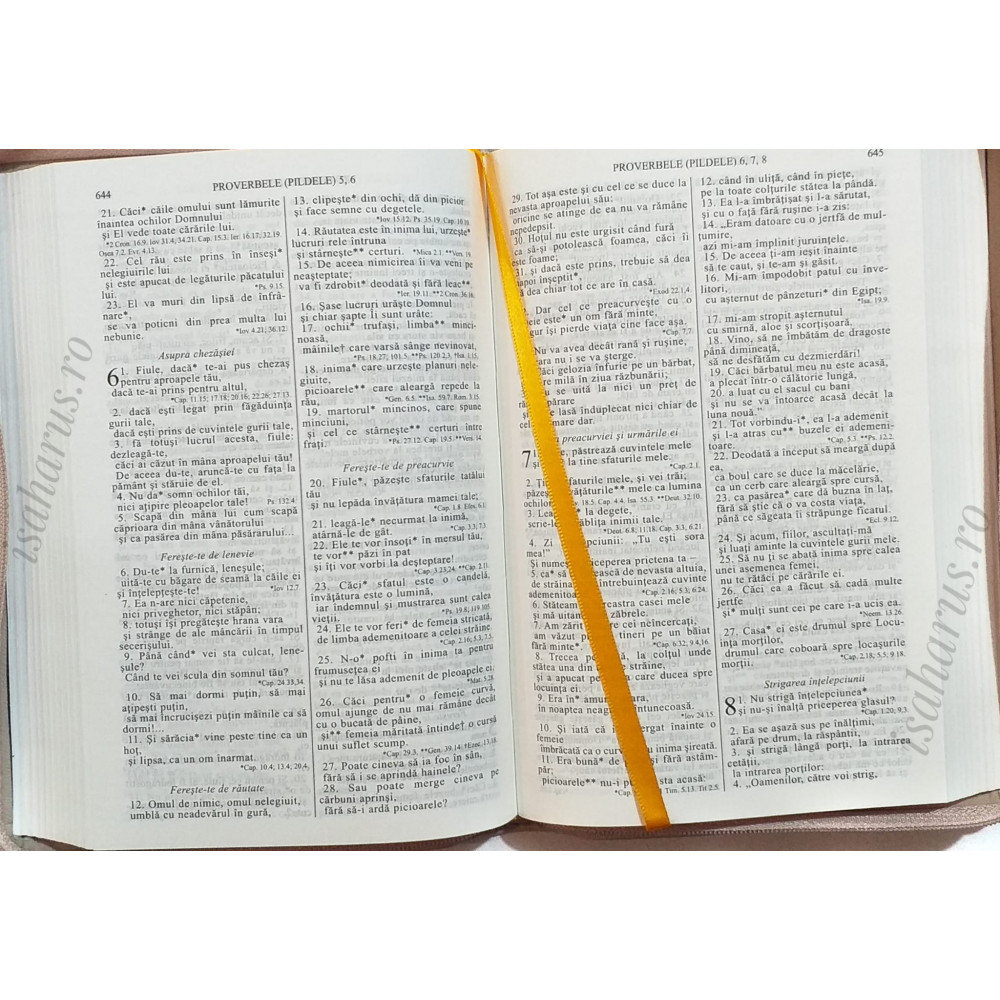 644
PROVERBELE (PILDELE) 5, 6
21. Căci* căile omului sunt lămurite
înaintea ochilor Domnului
și El vede toate cărările lui.
*2 Cron. 16.9. Iov 31.4; 34.21. Cap. 15.3. Ier. 16.17; 32.19.
Osea 7.2. Evr. 4.13.
22. Cel rău este prins în înseși*
nelegiuirile lui
și este apucat de legăturile păcatului
lui.
*Ps. 9.15.
23. El va muri din lipsă de înfrâ-
nare*,
se va poticni din prea multa lui
nebunie.
*Iov 4.21; 36.12.
Asupra chezășiei
6 1. Fiule, dacă* te-ai pus chezaș
pentru aproapele tău,
dacă te-ai prins pentru altul,
*Cap. 11.15; 17.18; 20.16; 22.26; 27.13.
2. dacă ești legat prin făgăduința
gurii tale,
dacă ești prins de cuvintele gurii tale,
3. fă totuși lucrul acesta, fiule:
dezleagă-te,
căci ai căzut în mâna aproapelui tău!
De aceea du-te, aruncă-te cu fața la
pământ și stăruie de el.
4. Nu da* somn ochilor tăi,
nici ațipire pleoapelor tale!
Ps. 132.4.
5. Scapă din mâna lui cum scapă
căprioara din mâna vânătorului
și ca pasărea din mâna păsărarului...
Ferește-te de lenevie
6. Du-te* la furnică, leneșule;
uită-te cu băgare de seamă la căile ei
și înțelepțește-te!
*Iov 12.7.
7. Ea n-are nici căpetenie,
nici priveghetor, nici stăpân;
8. totuși își pregătește hrana vara
și strânge de ale mâncării în timpul
secerișului.
9. Până când* vei sta culcat, lene-
șule?
Când te vei scula din somnul tău?
*Cap. 24.33,34.
10. Să mai dormi puțin, să mai
ațipești puțin,
să mai încrucișezi puțin mâinile ca să
dormi!...
11. Și sărăcia* vine peste tine ca un
hoț,
și lipsa, ca un om înarmat.
*Cap. 10.4; 13.4; 20.4.
Ferește-te de răutate
12. Omul de nimic, omul nelegiuit,
umblă cu neadevărul în gură,
13. clipește* din ochi, dă din picior
și face semne cu degetele.
*Iov 15.12. Ps. 35.19. Cap. 10.10.
14. Răutatea este în inima lui, urzește*
lucruri rele întruna
și stârnește** certuri.
*Mica 2.1. **Vers. 19.
15. De aceea nimicirea îi va veni pe
neașteptate;
va fi zdrobit* deodată și fără leac**.
*Ier. 19.11. **2 Cron. 36.16.
16. Șase lucruri urăște Domnul
și chiar șapte Îi sunt urâte:
17. ochii* trufași, limba** minci-
noasă,
mâinile† care varsă sânge nevinovat,
*Ps. 18.27; 101.5. **Ps. 120.2,3. †Isa. 1.15.
18. inima* care urzește planuri nele-
giuite,
picioarele** care aleargă repede la
rău,
*Gen. 6.5. **Isa. 59.7. Rom. 3.15.
19. martorul* mincinos, care spune
minciuni,
și cel ce stârnește** certuri între
frați.
*Ps. 27.12. Cap. 19.5. **Vers. 14.
Ferește-te de preacurvie
20. Fiule*, păzește sfaturile tatălui
tău
și nu lepăda învățătura mamei tale;
*Cap. 1.8. Efes. 6.1.
21. leagă-le* necurmat la inimă,
atârnă-le de gât.
*Cap. 3.3; 7.3.
22. Ele te vor însoți* în mersul tău,
te vor** păzi în pat
și îți vor vorbi la deșteptare!
*Cap. 3.23,24. **Cap. 2.11.
23. Căci* sfatul este o candelă,
învățătura este o lumină,
iar îndemnul și mustrarea sunt calea
vieții.
*Ps. 19.8; 119.105.
24. Ele te vor feri* de femeia stricată,
de limba ademenitoare a celei străine.
*Cap. 2.16; 5.3; 7.5.
25. N-o* pofti în inima ta pentru
frumusețea ei
și nu te lăsa ademenit de pleoapele ei.
*Mat. 5.28.
26. Căci pentru* o femeie curvă,
omul ajunge de nu mai rămâne decât
cu o bucată de pâine,
și** femeia măritată întinde† o cursă
unui suflet scump.
*Cap. 29.3. **Gen. 39.14. †Ezec. 13.18.
27. Poate cineva să ia foc în sân,
fără să i se aprindă hainele?
28. Sau poate merge cineva pe
cărbuni aprinși,
fără să-i ardă picioarele?
PROVERBELE (PILDELE) 6, 7, 8
645
29. Tot așa este și cu cel ce se duce la
nevasta aproapelui său:
oricine se atinge de ea nu va rămâne
nepedepsit.
30. Hoțul nu este urgisit când fură
ca să-și potolească foamea, căci îi
este foame;
31. și dacă este prins, trebuie să dea
înapoi înșeptit*,
să dea chiar tot ce are în casă.
*Exod 22.1,4.
Dar cel ce preacurvește cu o
este* un om fără minte,
singur își pierde viața cine face așa.
*Cap. 7.7.
Nu va avea decât rană și rușine,
nu i se va șterge.
gelozia înfurie pe un bărbat,
milă în ziua răzbunării;
se uită la nici un preț de
răscumpărare
lasă înduplecat nici chiar de
mare dar.
preacurviei și urmările ei
7 păstrează cuvintele mele
și ține la tine sfaturile mele.
*Cap. 2.1.
2. sfaturile mele, și vei trăi;
învățăturile** mele ca lumina
18.5. Cap. 4.4. Isa. 55.3. **Deut. 32.10.
3. Leagă-le* la degete,
scrie-le tăblița inimii tale.
*Deut. 6.8; 11.18. Cap. 3.3; 6.21.
4. Zi înțelepciunii: „Tu ești sora
mea!”
Și numește priceperea prietena ta –
5. ca* să te ferească de nevasta altuia,
de străina întrebuințează cuvinte
ademenitoare.
*Cap. 2.16; 5.3; 6.24.
6. Stăteam fereastra casei mele
și mă uitam zăbrele.
7. Am zărit cei neîncercați,
am văzut tineri pe un băiat
fără minte*.
*Cap. 6.32; 9.4,16.
8. Trecea pe la colțul unde
stătea una din străine,
și a apucat pe care ducea spre
locuința ei:
9. Era în* amurg, seara,
în noaptea neagră întunecoasă.
*Iov 24.15.
10. Și iată că întru întâmpinare înainte o
femeie
îmbrăcată ca o curvă și cu inima șireată.
11. Era bună* de și fără astâm-
păr;
picioarele** nu-i acasă:
*Cap. 1 Tim. 5.13. Tit 2.5.
12. când în uliță, când în piețe,
pe la toate colțurile stătea la pândă.
13. Ea l-a îmbrățișat și l-a sărutat,
și cu o față fără rușine i-a zis:
14. „Eram datoare cu o jertfă de mul-
țumire,
azi mi-am împlinit juruințele.
15. De aceea ți-am ieșit înainte
să te caut, și te-am și găsit.
16. Mi-am împodobit patul cu înve-
litori,
cu așternut de pânzeturi* din Egipt;
*Isa. 19.9.
17. mi-am stropit așternutul
cu smirnă, aloe și scorțișoară.
18. Vino, să ne îmbătăm de dragoste
până dimineață,
să ne desfătăm cu dezmierdări!
19. Căci bărbatul meu nu este acasă,
a plecat într-o călătorie lungă,
20. a luat cu el sacul cu bani
și nu se va întoarce acasă decât la
luna nouă.”
21. Tot vorbindu-i*, ea l-a ademenit
și l-a atras cu** buzele ei ademeni-
toare.
*Cap. 5.3. **Ps. 12.2.
22. Deodată a început să meargă după
ea,
ca boul care se duce la măcelărie,
ca un cerb care aleargă spre cursă,
23. ca pasărea* care dă buzna în laț,
fără să știe că o va costa viața,
până ce săgeata îi străpunge ficatul.
*Ecl. 9.12.
24. Și acum, fiilor, ascultați-mă
și luați aminte la cuvintele gurii mele.
25. Să nu ți se abată inima spre calea
unei asemenea femei,
nu te rătăci pe cărările ei.
26. Căci ea a făcut să cadă multe
jertfe
și* mulți sunt cei pe care i-a ucis ea.
*Neem. 13.26.
27. Casa* ei este drumul spre Locu-
ința morților,
drumul care coboară spre locașurile
morții.
*Cap. 2.18; 5.5; 9.18.
Strigarea înțelepciunii
8 1. Nu strigă înțelepciunea*
și nu-și înalță priceperea glasul?
*Cap. 1.20; 9.3.
2. Ea se așază sus pe înălțimi,
afară pe drum, la răspântii,
3. și strigă lângă porți, la intrarea
cetății,
la intrarea porților:
4. „Oamenilor, către voi strig,
isaharus.ro
isaharus.ro